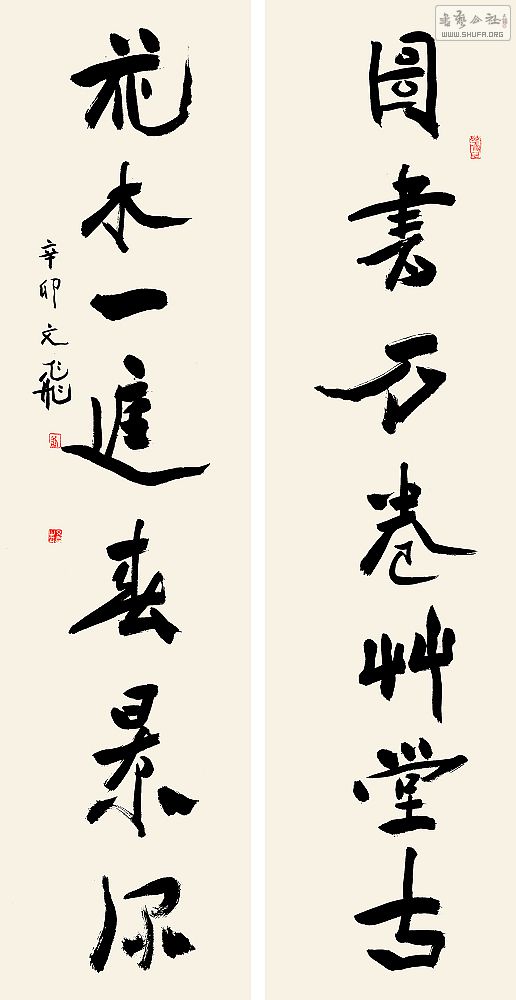 書藝公社
WWW.SHUFA.ORG
圖書万卷艸堂古
花木一進春景深
辛卯文飛